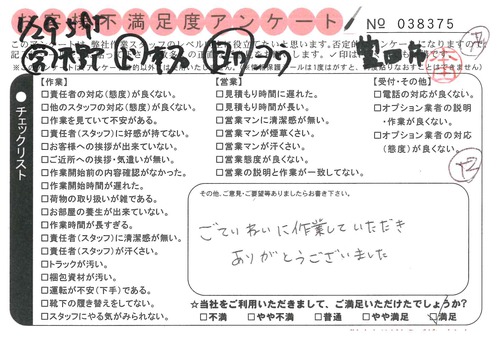 お客様不満足度アンケート
№ 038375
【作業】
□責任者の対応(態度)が良くない。
□他のスタッフの対応(態度)が良くない。
□作業を見ていて不安がある。
□責任者(スタッフ)に好感が持てない。
□お客様への挨拶が出来ていない。
□ご近所への挨拶・気遣いが無い。
□作業開始前の内容確認がなかった。
□作業開始時間が遅れた。
□荷物の取り扱いが雑である。
□お部屋の養生が出来ていない。
□作業時間が長すぎる。
□責任者(スタッフ)に清潔感が無い。
□責任者(スタッフ)が汗くさい。
□トラックが汚い。
□梱包資材が汚い。
□運転が不安(下手)である。
□靴下の履き替えをしてない。
□スタッフにやる気がみられない。
【営業】
□見積もり時間に遅れた。
□見積もり時間が長い。
□営業マンに清潔感が無い。
□営業マンが煙草くさい。
□営業マンが汗くさい。
□営業態度が良くない。
□営業の説明と作業が一致してない。
【受付・その他】
□電話の対応が良くない。
□オプション業者の説明
・作業が良くない。
□オプション業者の対応
(態度)が良くない。
チェックリスト
その他、ご意見・ご要望等ありましたらお書き下さい。
ごていねいに作業していただき
ありがとうございました
☆当社をご利用いただきまして、ご満足いただけたでしょうか?
□不満 □やや不満 □普通 □やや満足 □満足